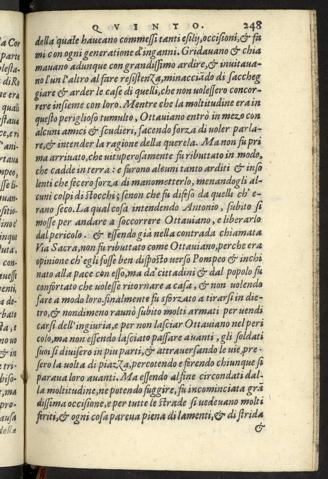 QVINTO. 248
della quale haueano commessi tanti esilij, occisioni, & fa
mi con ogni generatione d'inganni. Gridauano & chia
mauano adunque con grandissimo ardire, & inuitaua-
no l'un l'altro al fare resistenza, minacciãdo di saccheg
giare & arder le case di quelli, che non uolessero concor-
rere insieme con loro. Mentre che la moltitudine era in
questo periglioso tumulto, Ottauiano entrò in mezo con
alcuni amici & scudieri, facendo forza di uoler parla-
re, & intender la ragione della querela. Ma non fu pri
ma arriuato, che uituperosamente fu ributtato in modo,
che cadde in terra: e furono alcuni tanto arditi & inso
lenti che fecero forza di manometterlo, menandogli al-
cuni colpi di stocchi; se non che fu difeso da quelli ch'e-
rano seco. La qual cosa intendendo Antonio, subito si
mosse per andare a soccorrere Ottauiano, e liberarlo
dal pericolo. & essendo già nella contrada chiamata
Via Sacra, non fu ributtato come Ottauiano, perche era
opinione ch'egli fosse ben disposto uerso Pompeo & inchi
nato alla pace con esso, ma da' cittadini & dal popolo fu
confortato che uolesse ritornare a casa, & non uolendo
fare a modo loro, finalmente fu sforzato a tirarsi in die-
tro, & nondimeno raunò subito molti armati per uendi
carsi dell'ingiuria, e per non lasciar Ottauiano nel peri
colo, ma non essendo lasciato passare auanti, gli soldati
suoi si diuisero in piu parti, & attrauersando le uie, pre-
sero la uolta di piazza, percotendo e firendo chiunque si
paraua loro auanti. Ma essendo al fine circondati dal-
la moltitudine, ne potendo fuggire, fu incominciata grã
dissima occisione, e per tutte le strade si uedeuano molti
firiti, & ogni cosa pareua piena di lamenti, & di strida
&